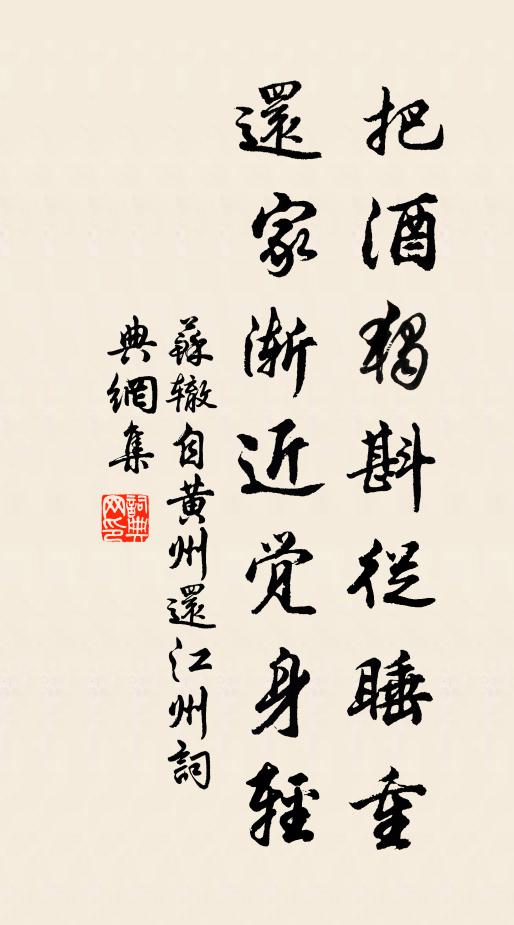 把酒獨斟從睡重
還家漸近觉身輕
蘇辙自黄州還江州詞
典網集
詞典網印